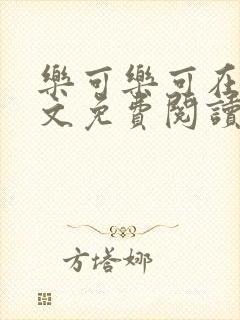 樂可樂可在
文免費閱讀
方塔娜